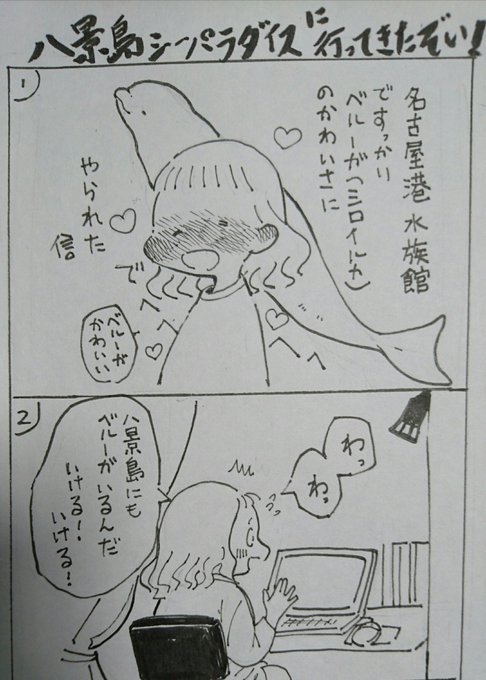 八景島シーパラダイスに行ってきたぞい!
1
名古屋港水族館
ですっかり
ベルーガ(シロイルカ)
のかわいさに
やられた
信
でへへへへ
ベルーガ
かわいい
2
わっ
わっ
八景島にも
ベルーガいるんだ
いける!
いける!